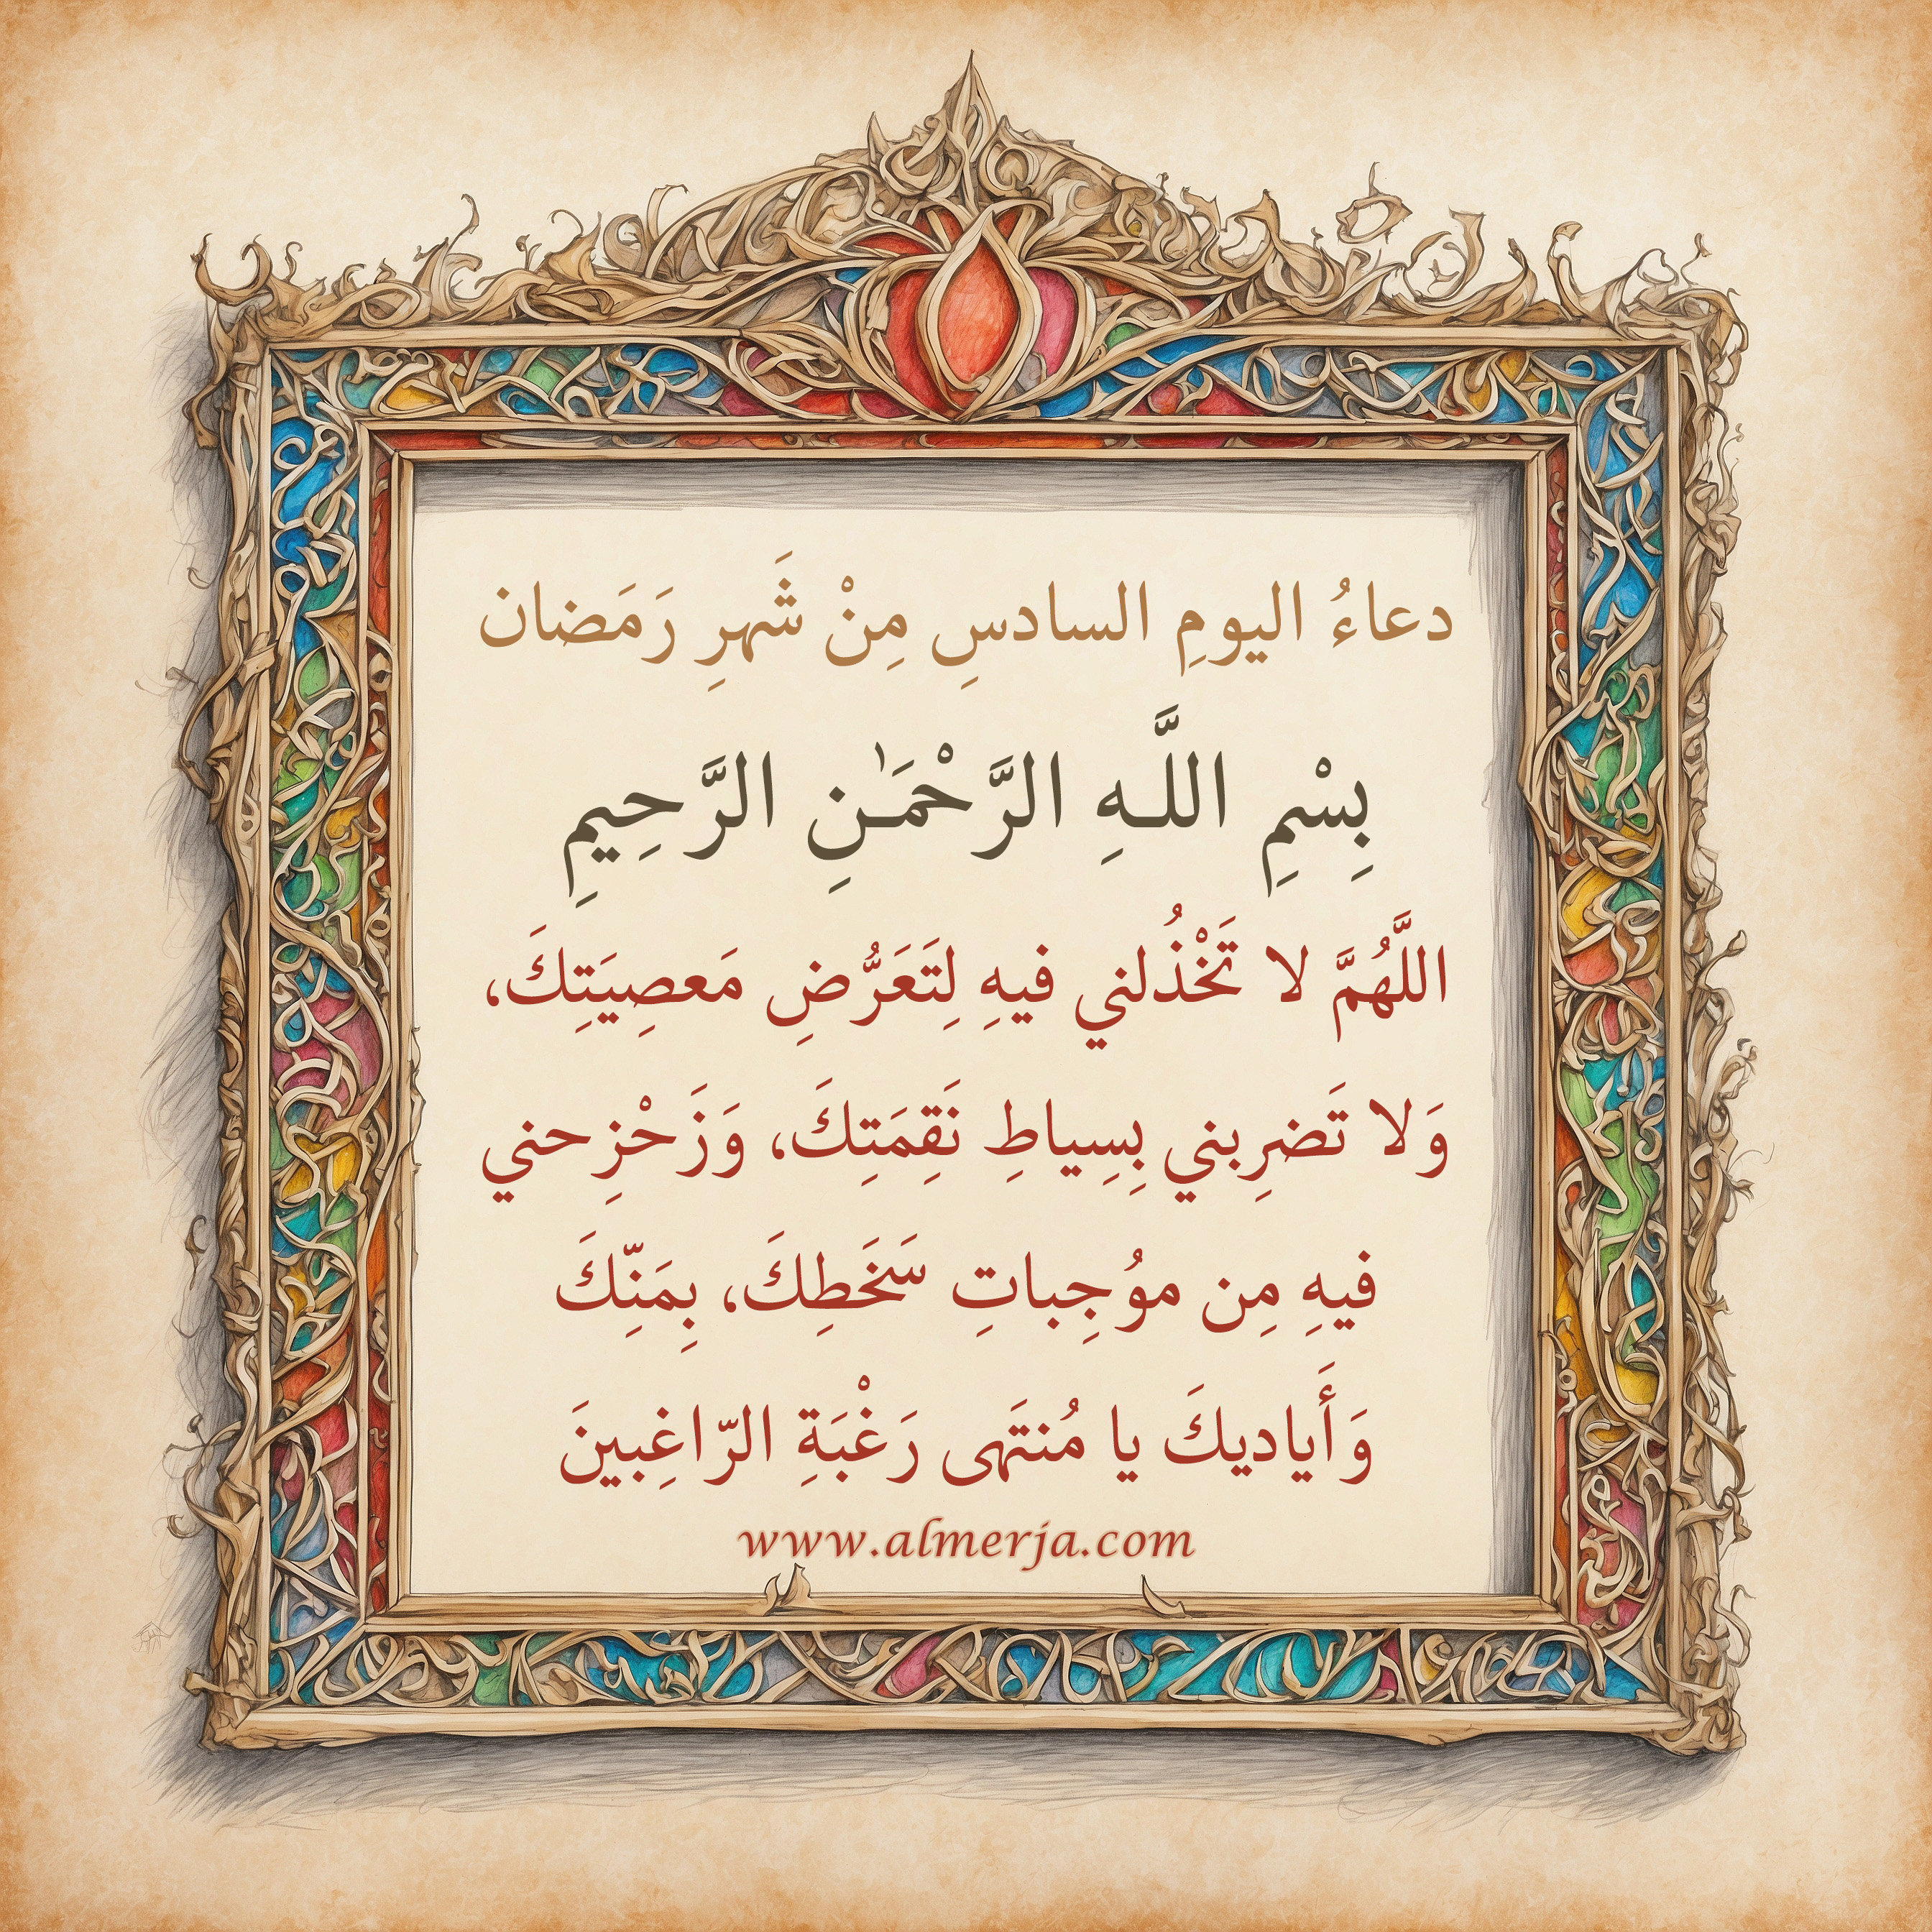 دعاءُ اليومِ السادسِ مِنْ شَهرِ رَمَضان
بِسْمِ اللَّـهِ الرَّحْمَـٰنِ الرَّحِيمِ
اللَّهُمَّ لا تَخْذُلني فيهِ لِتَعَرُّضِ مَعصِيَتِكَ،
وَلا تَضرِبني بِسِياطِ نَقِمَتِكَ، وَزَحْزِحني
فيهِ مِن موُجِباتِ سَخَطِكَ، بِمَنِّكَ
وَأَياديكَ يا مُنتَهى رَغْبَةِ الرّاغِبينَ
www.almerja.com